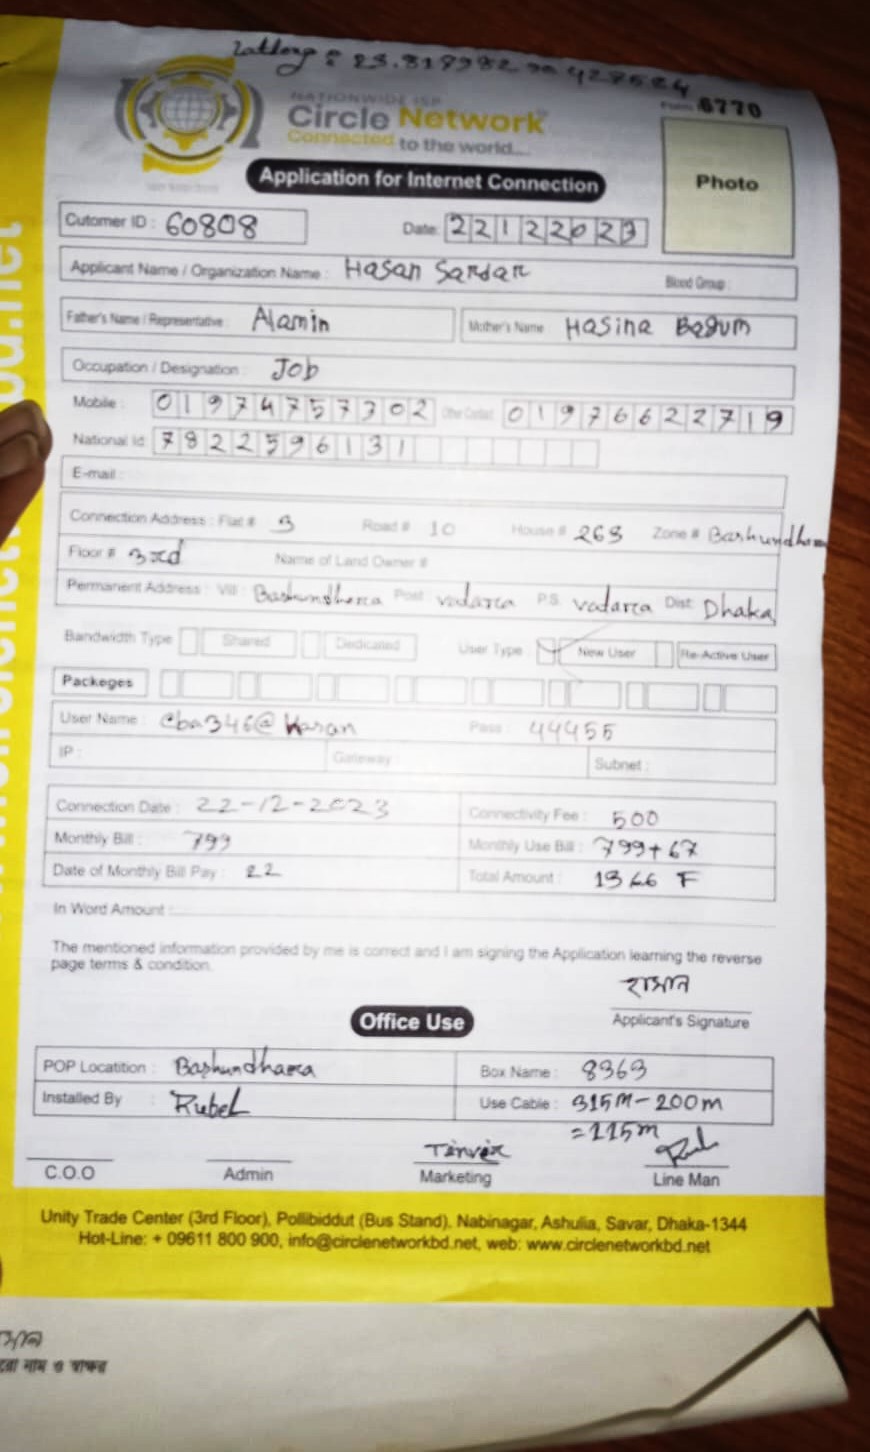 Latlong : 23.817982 90.427524
NATIONWIDE ISP
Circle Network
Connected to the world....
Form 6770
Photo
Application for Internet Connection
Cutomer ID : 60808 Date: 22122023
Applicant Name / Organization Name : Hasan Sardar Blood Group :
Father's Name / Representative : Alamin Mother's Name Hasina Begum
Occupation / Designation : Job
Mobile : 01974757302 Other Contact 01976622719
National Id: 7822596131
E-mail :
Connection Address : Flat # 3 Road # 10 House # 263 Zone # Bashundhara
Floor # 3rd Name of Land Owner #
Permanent Address : Vill : Bashundhara Post: vadara P.S. vadara Dist: Dhaka
Bandwidth Type Shared Dedicated User Type New User Re-Active User
Packeges
User Name : Cba346@Hasan Pass : 44455
IP : Gateway Subnet :
Connection Date : 22-12-2023 Connectivity Fee : 500
Monthly Bill : 799 Monthly Use Bill : 799+67
Date of Monthly Bill Pay : 22 Total Amount : 1366 F
In Word Amount :
The mentioned information provided by me is correct and I am signing the Application learning the reverse
page terms & condition.
হাসান
Applicant's Signature
Office Use
POP Locatition : Bashundhara Box Name : 8363
Installed By : Rubel Use Cable : 315M-200m
=115m
Tanvir
C.O.O Admin Marketing Line Man
Unity Trade Center (3rd Floor), Pollibiddut (Bus Stand), Nabinagar, Ashulia, Savar, Dhaka-1344
Hot-Line: + 09611 800 900, info@circlenetworkbd.net, web: www.circlenetworkbd.net
নাম ও স্বাক্ষর